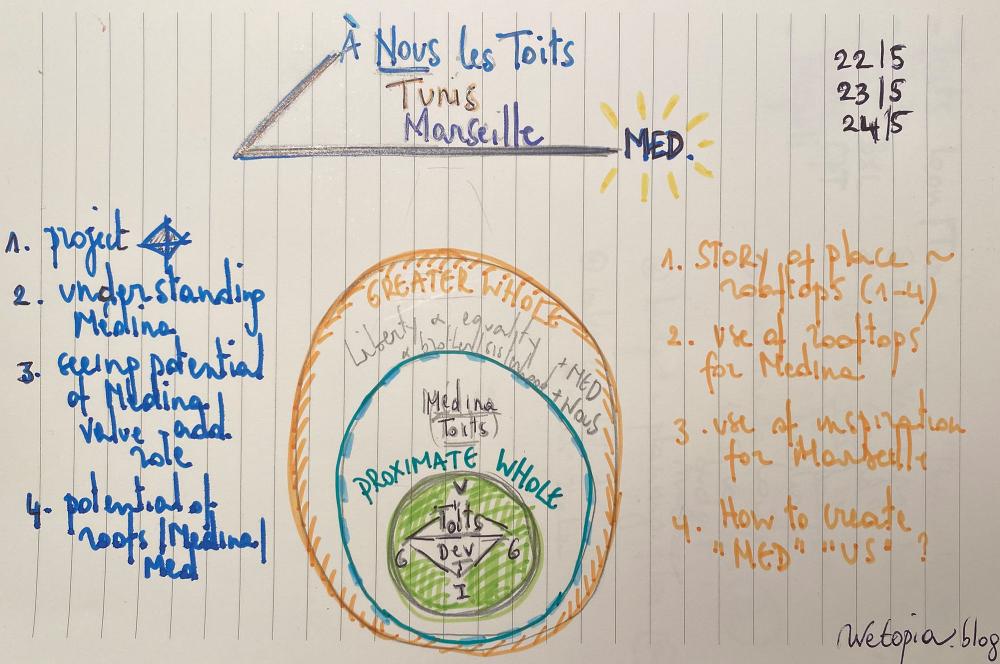 À Nous les Toits
Tunis
Marseille
MED.
22/5
23/5
24/5
1. project
2. understanding
Médina
3. seeing potential
of Médina
value-add.
role
4. potential of
roofs/Médina/
Med
GREATER WHOLE
Liberty & equality
+ MED
+ NOUS
Médina
(Toits)
PROXIMATE WHOLE
V
Toits
6 Dev 6
I
1. STORY of place ~
rooftops (1-4)
2. use of rooftops
for Medina
3. use of inspiration
for Marseille
4. How to create
"MED" "US" ?
Wetopia.blog